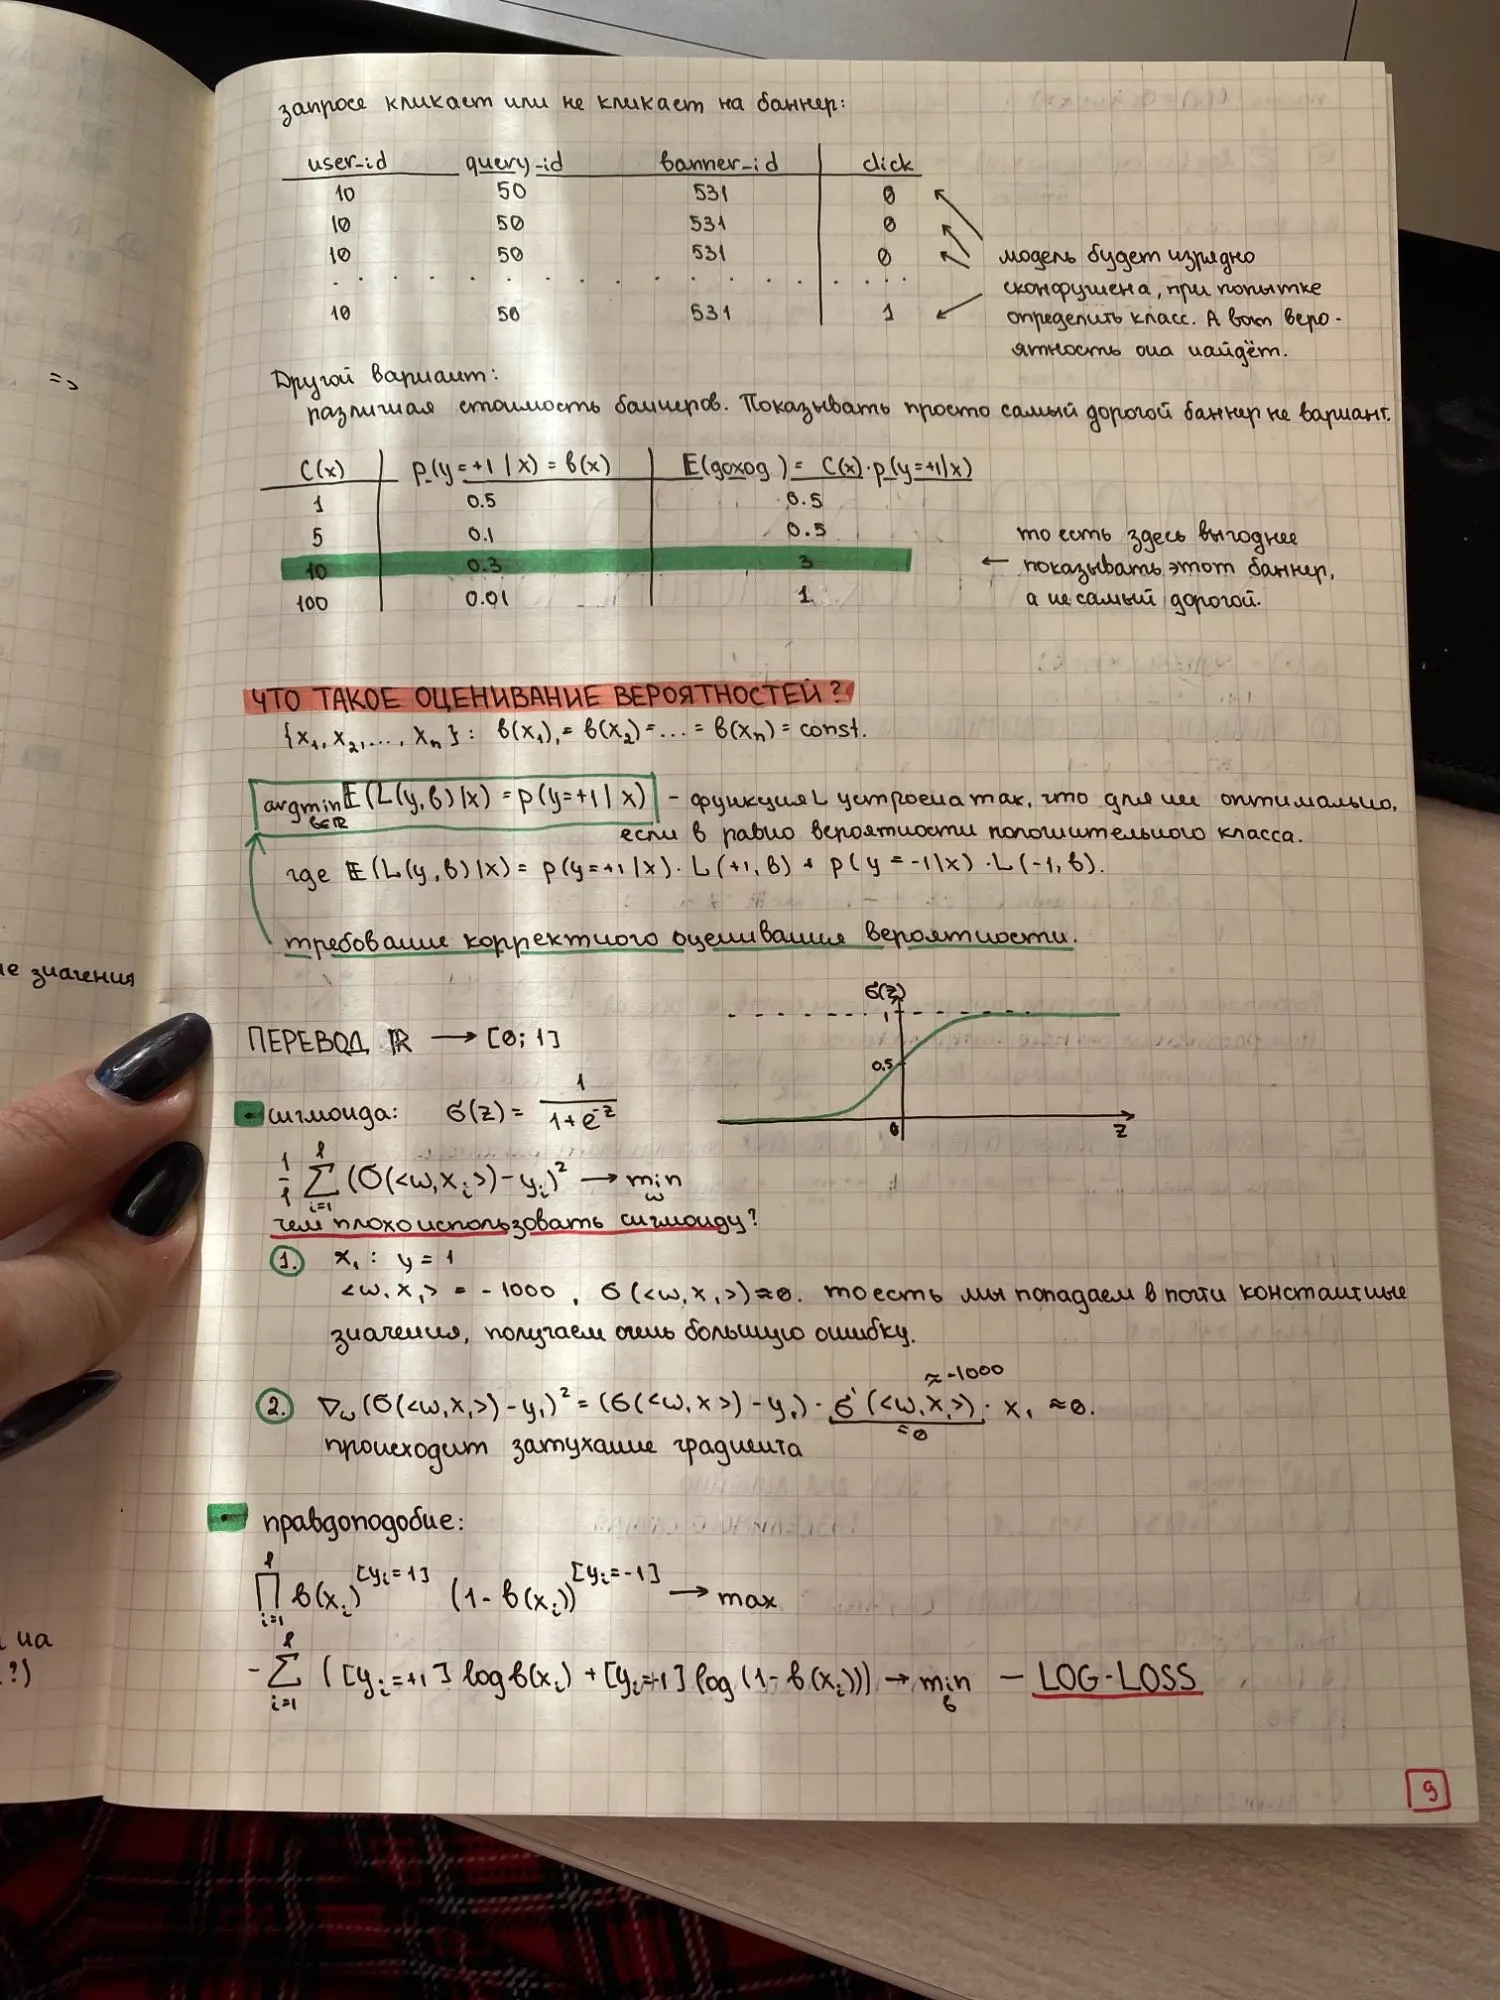 запросе кликает или не кликает на баннер:
user_id query_id banner_id click
10 50 531 0
10 50 531 0
10 50 531 0
. . . . . . . . . . . . . . .
10 50 531 1
модель будет изрядно
сконфушена, при попытке
определить класс. А вот веро-
ятность она найдёт.
=>
Другой вариант:
различная стоимость баннеров. Показывать просто самый дорогой баннер не вариант.
C(x) p(y=+1|x)=b(x) E(доход)=C(x)·p(y=+1|x)
1 0.5 0.5
5 0.1 0.5
10 0.3 3
100 0.01 1
то есть здесь выгоднее
← показывать этот баннер,
а не самый дорогой.
ЧТО ТАКОЕ ОЦЕНИВАНИЕ ВЕРОЯТНОСТЕЙ?
{x₁, x₂, ..., xₙ}: b(x₁) = b(x₂) = ... = b(xₙ) = const.
argmin E(L(y,b)|x) = p(y=+1|x) - функция L устроена так, что для нее оптимально,
b∈R
если b равно вероятности положительного класса.
где E(L(y,b)|x) = p(y=+1|x)·L(+1,b) + p(y=-1|x)·L(-1,b).
требование корректного оценивания вероятности.
не значения
ПЕРЕВОД R → [0; 1]
σ(z)
1
0.5
0
z
• сигмоида: σ(z) = 1/(1+e^-z)
1/l Σ_{i=1}^{l} (σ(<w,x_i>)-y_i)² → min_w
чем плохо использовать сигмоиду?
1. x₁: y = 1
<w, x₁> = -1000, σ(<w,x₁>)≈0. то есть мы попадаем в почти константные
значения, получаем очень большую ошибку.
≈-1000
2. ∇_w(σ(<w,x₁>)-y₁)² = (σ(<w,x>)-y₁)·σ'(<w,x₁>)·x₁ ≈0.
≈0
происходит затухание градиента
• правдоподобие:
∏_{i=1}^{l} b(x_i)^[y_i=1] (1-b(x_i))^[y_i=-1] → max
на
?)
-Σ_{i=1}^{l} ([y_i=+1] log b(x_i) + [y_i=-1] log(1-b(x_i))) → min_b — LOG-LOSS
9